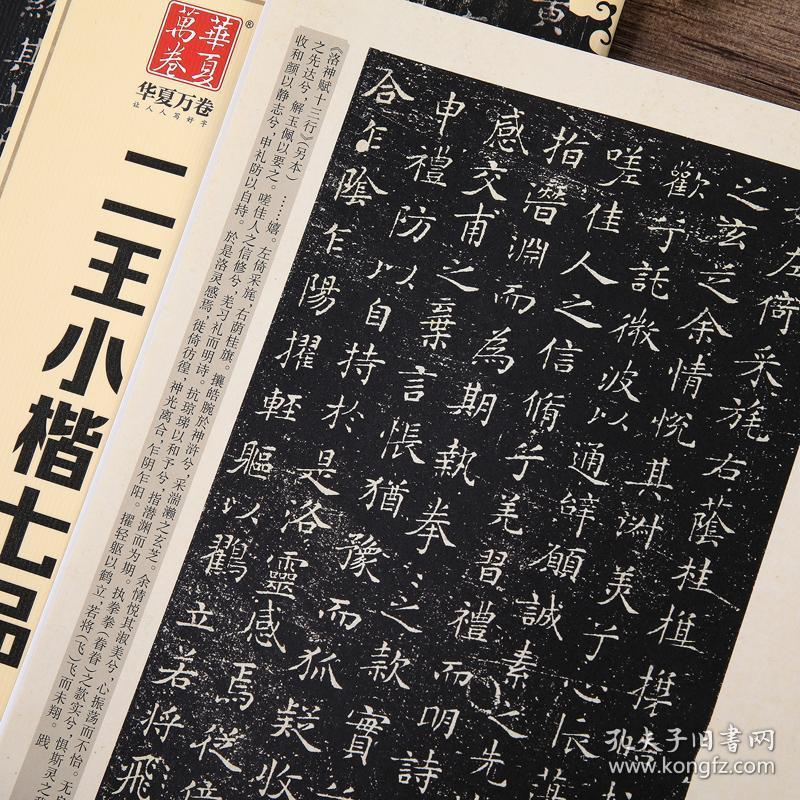 華夏
萬卷
®
华夏万卷
让人人写好字
二王小楷七品
《洛神赋十三行》(另本) ……嬉。左倚采旄，右荫桂旗。攘皓腕於神浒兮，采湍濑之玄芝。余情悦其淑美兮，心振荡而不怡。无良
之先达兮，解玉佩以要之。嗟佳人之信修兮，羌习礼而明诗。抗琼珶以和予兮，指潜渊而为期。执拳拳(眷眷)之款实兮，惧斯灵之我
收和颜以静志兮，申礼防以自持。於是洛灵感焉，徙倚彷徨，神光离合，乍阴乍阳。擢轻躯以鹤立，若将(飞)飞而未翔。践
左倚采旄右蔭桂旗攘
之玄芝余情悅其淋美乎心振蕩
歡乎託微波以通辭願誠素之先
嗟佳人之信脩乎羌習禮而明詩
指潛淵而為期執拳〻之款實乎
感交甫之棄言悵猶豫而狐疑收
申禮防以自持於是洛靈感焉徙倚
合乍陰乍陽擢輕軀以鶴立若將飛
孔夫子旧书网
www.kongfz.com